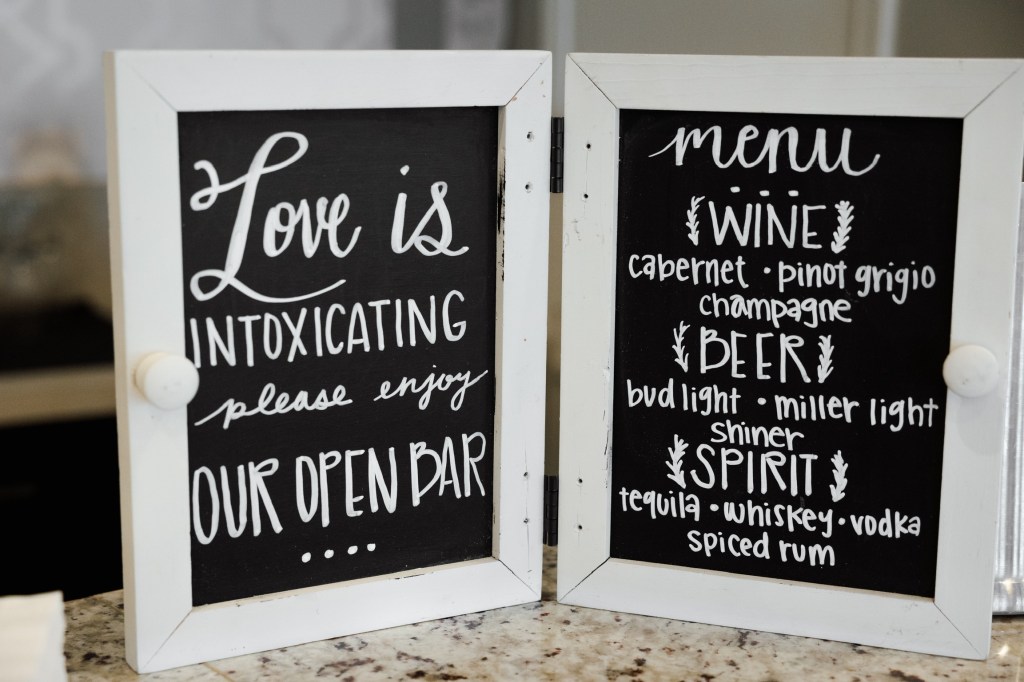 Love is
INTOXICATING
please enjoy
OUR OPEN BAR
....
menu
WINE
cabernet • pinot grigio
champagne
BEER
bud light • miller light
shiner
SPIRIT
tequila • whiskey • vodka
spiced rum